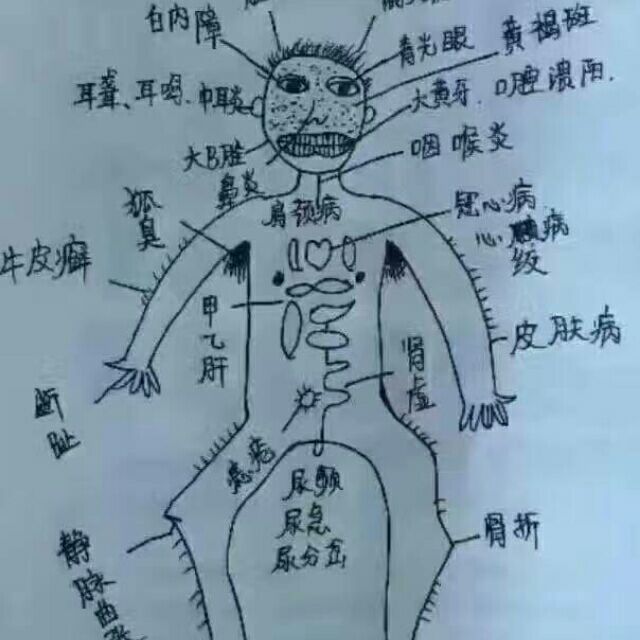 白内障
青光眼
黄褐斑
耳聋、耳鸣、中耳炎
大黄牙、口腔溃阳.
大B斑
鼻炎
咽喉炎
狐臭
肩颈病
冠心病
心
病
级
牛皮癣
甲乙肝
肾虚
皮肤病
断趾
尿频
尿急
尿分岔
骨折
静脉曲张